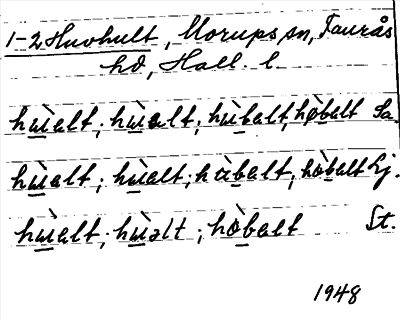 1-2 Huvhult, Morups sn, Faurås
hd, Hall. l.
hùalt; hùalt; hùbalt, hòbalt Sa.
hùalt; hùalt; hùbalt, hòbalt Lj.
hùalt; hùəlt; hòbalt St.
1948